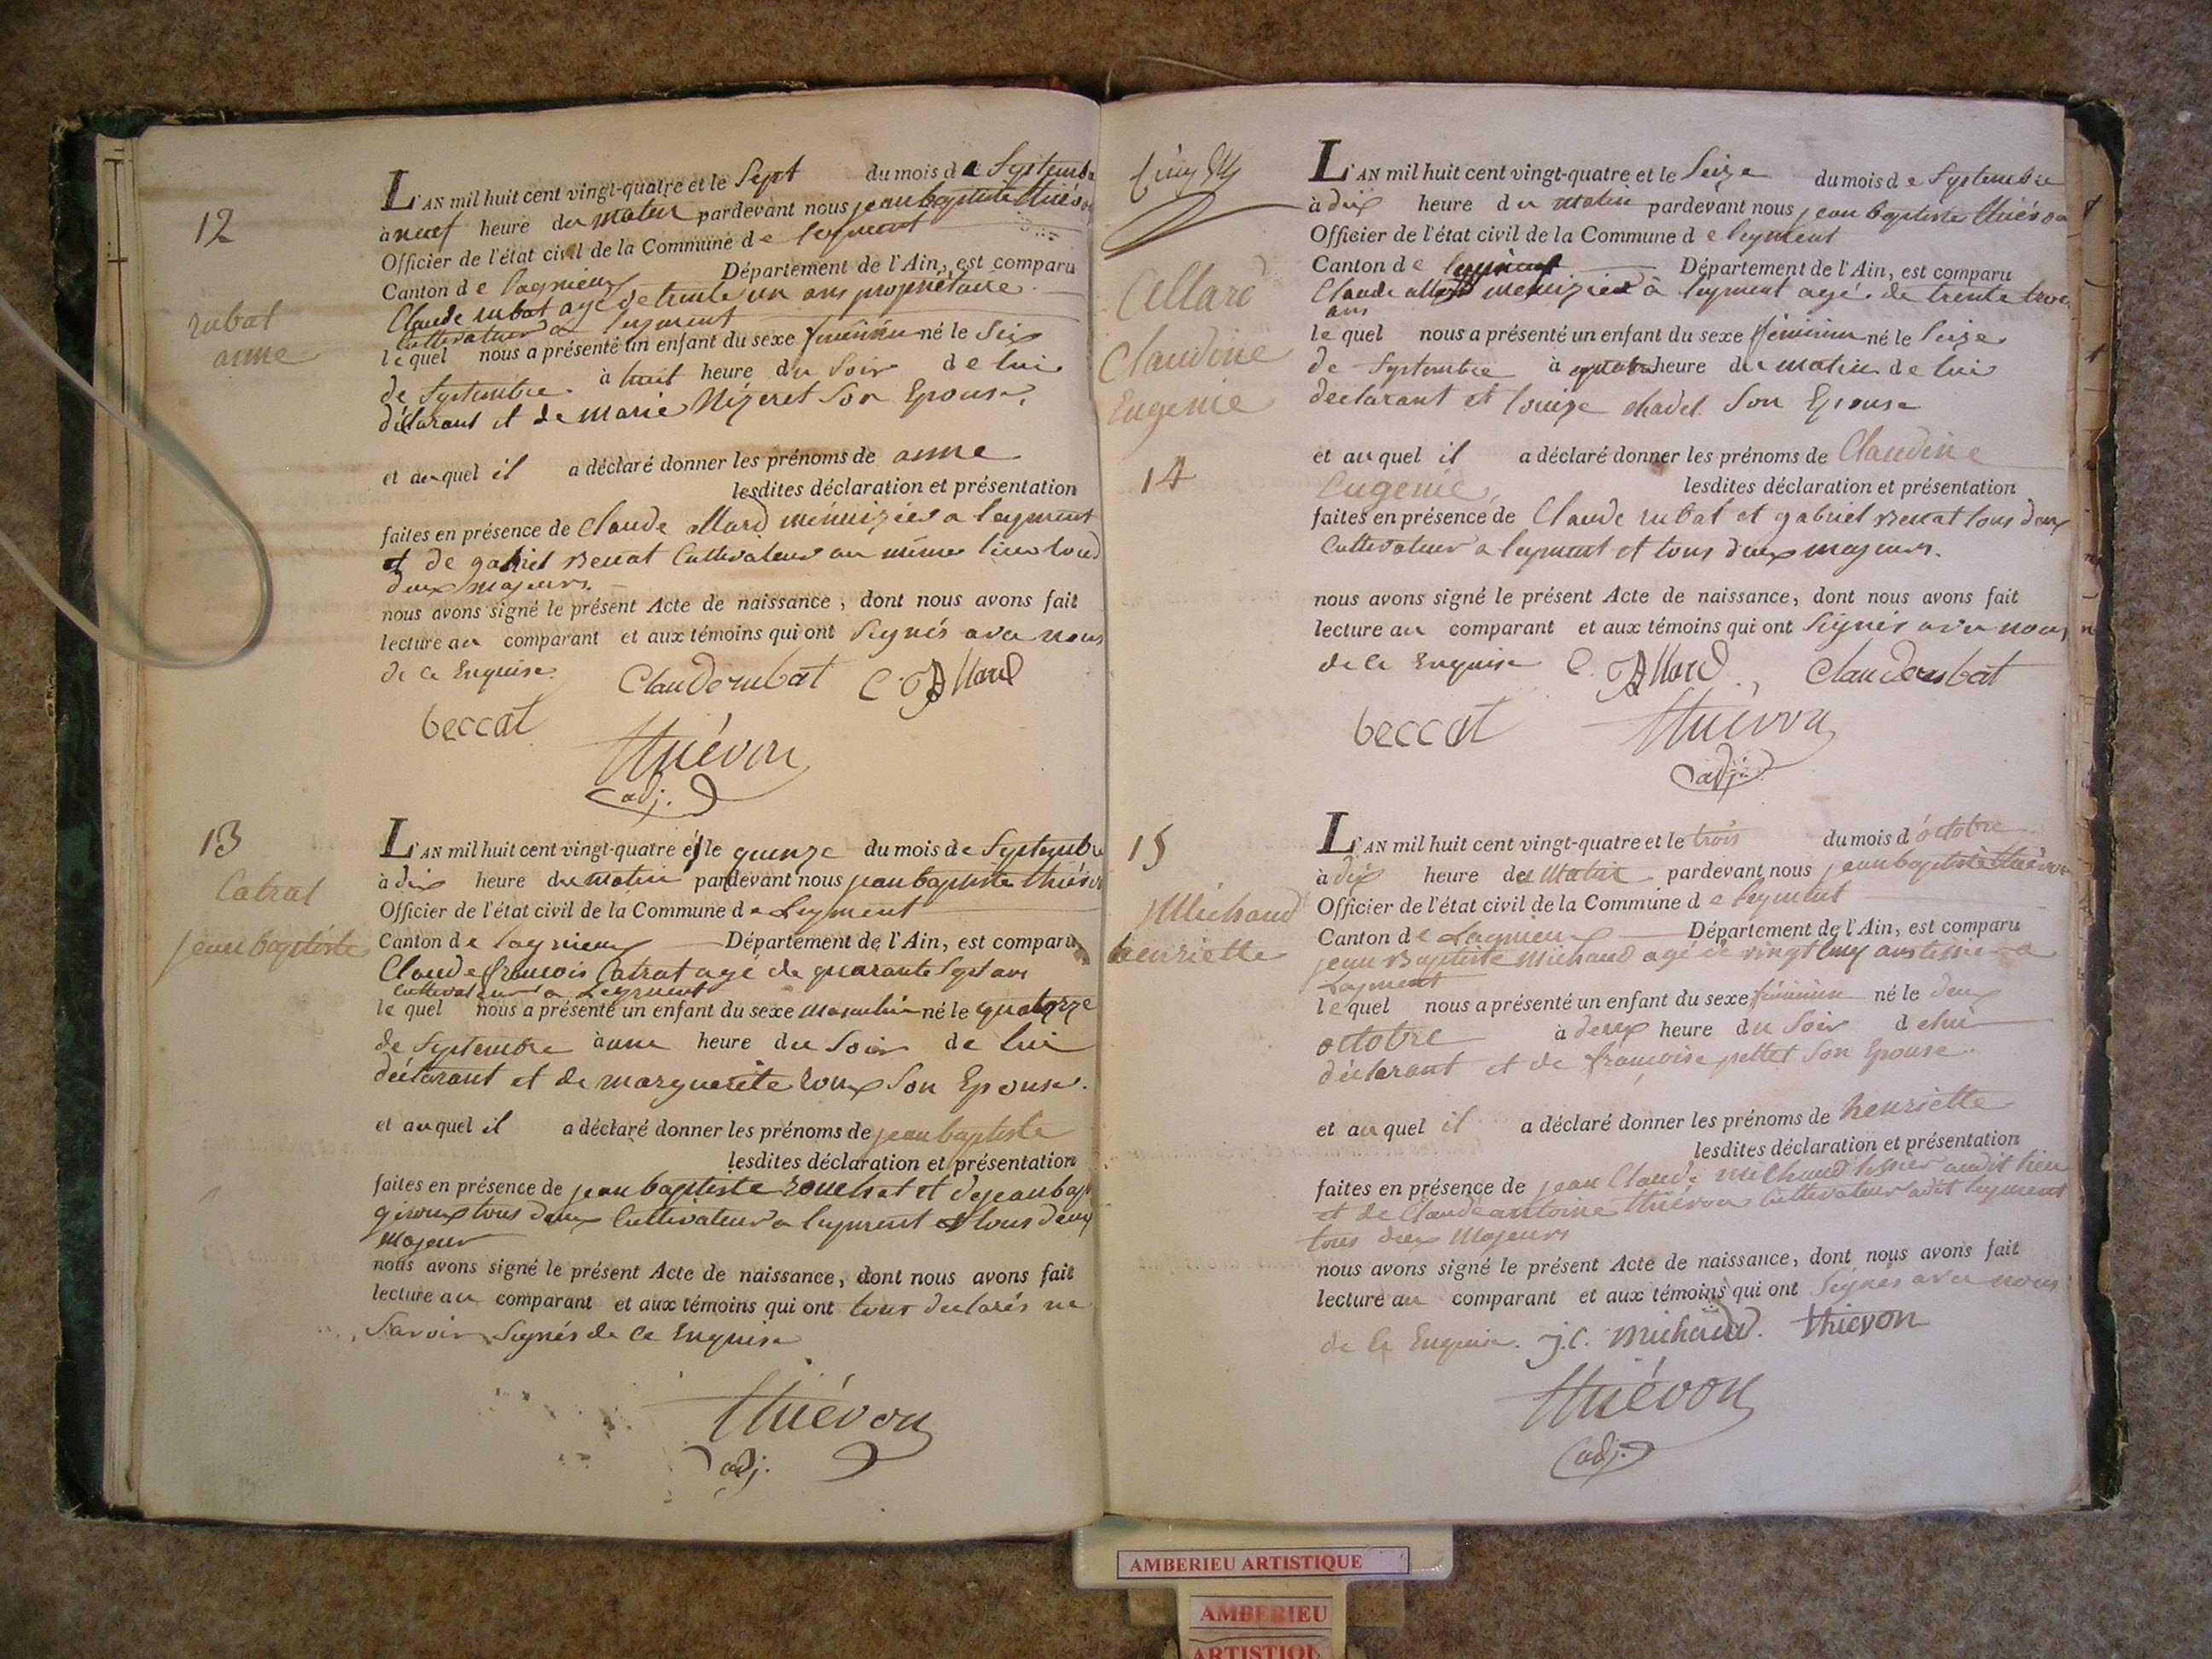 12
rubat
anne
L'AN mil huit cent vingt-quatre et le Sept du mois de Septembre
à neuf heure du matin pardevant nous jean baptiste thiévon
Officier de l'état civil de la Commune de leyment
Canton de lagnieux Département de l'Ain, est comparu
Claude rubat agé de trente un ans propriétaire
Cultivateur a leyment
le quel nous a présenté un enfant du sexe féminin né le Six
de Septembre à huit heure du Soir de lui
déclarant et de marie Nizeret Son Epouse.
et auquel il a déclaré donner les prénoms de anne
lesdites déclaration et présentation
faites en présence de Claude allard ménuizier a leyment
et de gabriel Beccat Cultivateur au même lieu tous
deux majeurs.
nous avons signé le présent Acte de naissance, dont nous avons fait
lecture au comparant et aux témoins qui ont Signés avec nous
de ce Enquise. Clauderubat C. Allard
beccat
thiévon
adj.
13
Catrat
jean baptiste
L'AN mil huit cent vingt-quatre et le quinze du mois de Septembre
à dix heure du matin pardevant nous jean baptiste thiévon
Officier de l'état civil de la Commune de Leyment
Canton de lagnieux Département de l'Ain, est comparu
Claude françois Catrat agé de quarante Sept ans
Cultivateur a Leyment
le quel nous a présenté un enfant du sexe masculin né le quatorze
de Septembre à une heure du Soir de lui
déclarant et de marguerite roux Son Epouse.
et auquel il a déclaré donner les prénoms de jean baptiste
lesdites déclaration et présentation
faites en présence de jean baptiste et de jean bap
giroux tous deux Cultivateur a leyment et tous deux
majeur
nous avons signé le présent Acte de naissance, dont nous avons fait
lecture au comparant et aux témoins qui ont tous declarés ne
Savoir Signés de ce Enquise
thiévon
adj.
Allard
Claudine
Eugenie
14
L'AN mil huit cent vingt-quatre et le Seize du mois de Septembre
à dix heure du matin pardevant nous jean baptiste thiévon
Officier de l'état civil de la Commune de leyment
Canton de Département de l'Ain, est comparu
Claude allard menuizier à leyment agé de trente trois
ans
le quel nous a présenté un enfant du sexe féminin né le Seize
de Septembre à quatre heure du matin de lui
declarant et louize chadel Son Epouse
et auquel il a déclaré donner les prénoms de Claudine
Eugenie, lesdites déclaration et présentation
faites en présence de Claude rubat et gabriel Beccat tous deux
Cultivateur a leyment et tous deux majeurs.
nous avons signé le présent Acte de naissance, dont nous avons fait
lecture au comparant et aux témoins qui ont Signés avec nous
de ce Enquise C. Allard. Clauderubat
beccat thiévon
adj.
15
Michaud
henriette
L'AN mil huit cent vingt-quatre et le trois du mois d'octobre
à dix heure du Matin pardevant nous jean baptiste thiévon
Officier de l'état civil de la Commune de leyment
Canton de Lagnieu Département de l'Ain, est comparu
jean Baptiste Michaud agé de vingt cinq ans tessier a
Leyment
le quel nous a présenté un enfant du sexe féminin né le deux
octobre à deux heure du Soir de lui
déclarant et de françoise pettet Son Epouse.
et auquel il a déclaré donner les prénoms de henriette
lesdites déclaration et présentation
faites en présence de jean Claude Michaud tessier audit lieu
et de Claude antoine thiévon Cultivateur adit leyment
tous deux Majeurs
nous avons signé le présent Acte de naissance, dont nous avons fait
lecture au comparant et aux témoins qui ont Signés avec nous
de ce Enquise. j.C. michaud. thievon
thiévon
adj.
AMBERIEU ARTISTIQUE
AMBERIEU
ARTISTIQU